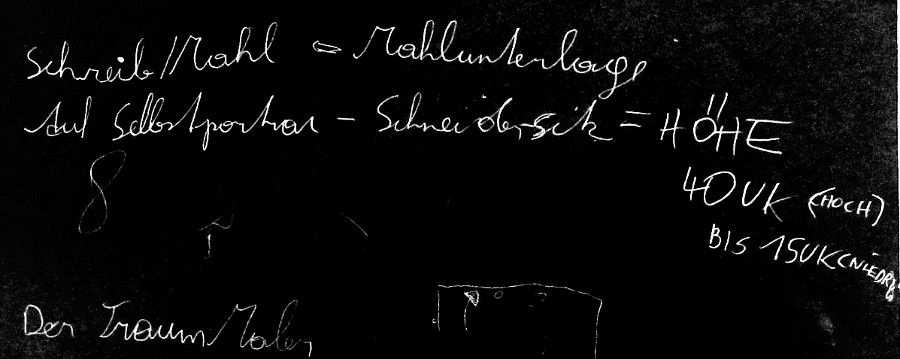 Schreib/Mahl = Mahlunterlage
Auf Selbstportrar - Schneidersitz = HÖHE
40 UK (HOCH)
BIS 15UK (NIEDRIG
8
Der Traum/Maler